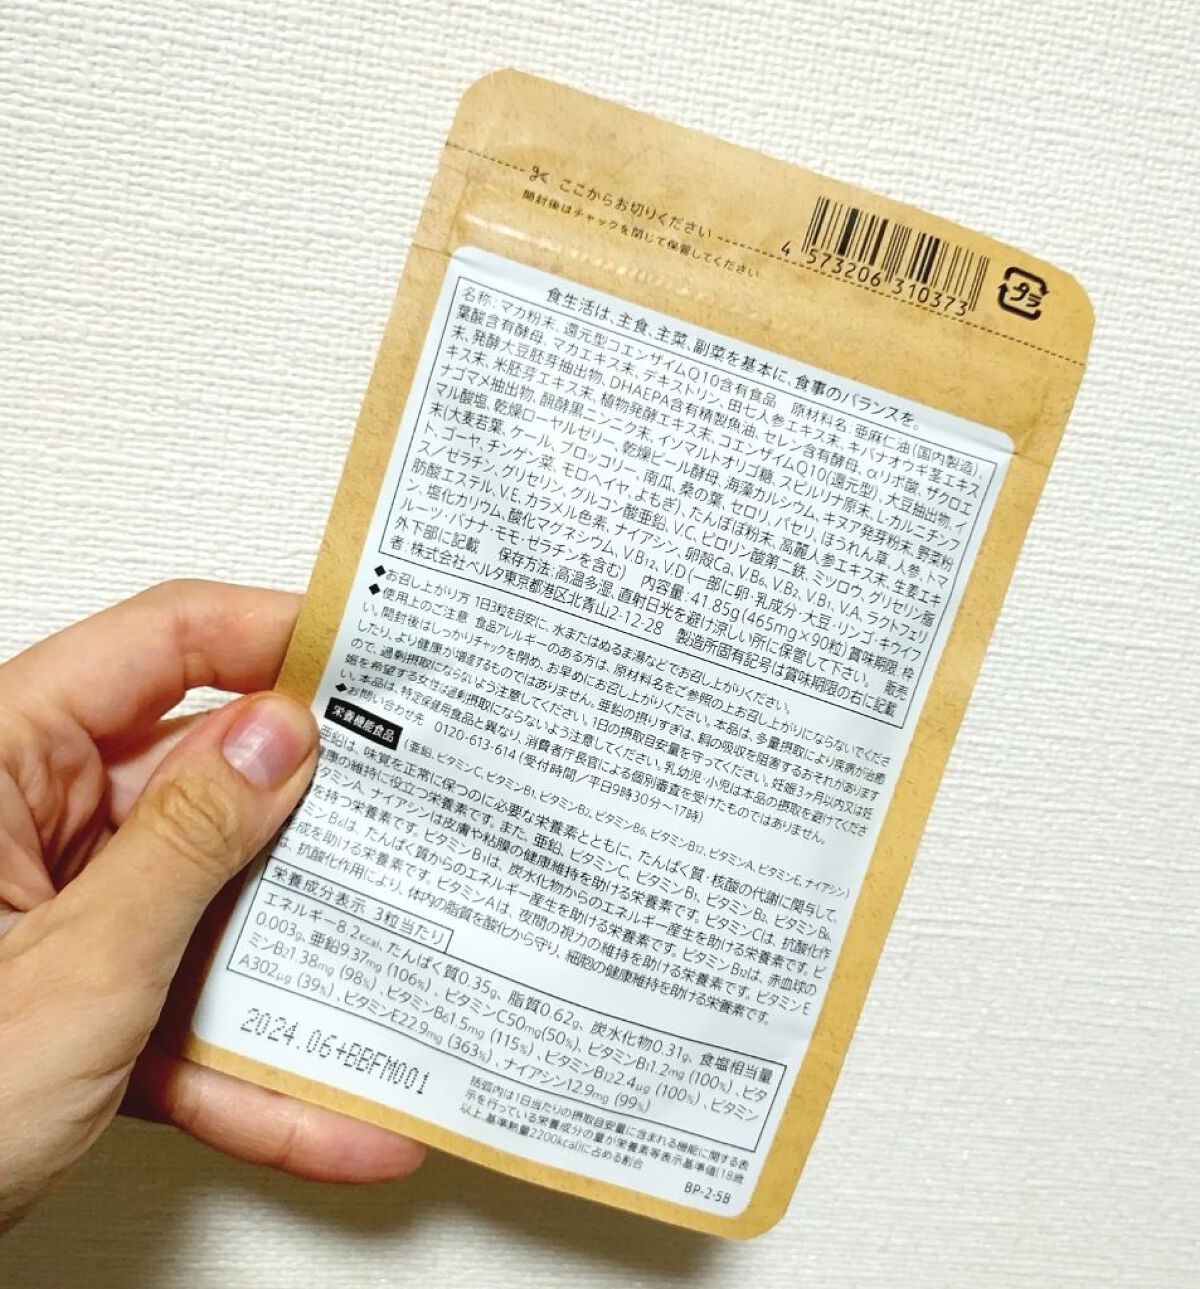 ここからお切りください
開封後はチャックを閉じて保管してください
4 573206 310373
プラ
食生活は、主食、主菜、副菜を基本に、食事のバランスを。
名称:マカ粉末、還元型コエンザイムQ10含有食品 原材料名:亜麻仁油(国内製造)、
葉酸含有酵母、マカエキス末、デキストリン、田七人参エキス末、キバナオウギ茎エキス
末、発酵大豆胚芽抽出物、DHAEPA含有精製魚油、セレン含有酵母、αリポ酸、ザクロエ
キス末、米胚芽エキス末、植物発酵エキス末、コエンザイムQ10(還元型)、大豆抽出物、イ
ナゴマメ抽出物、醗酵黒ニンニク末、イソマルトオリゴ糖、スピルリナ原末、L-カルニチンフ
マル酸塩、乾燥ローヤルゼリー、乾燥ビール酵母、海藻カルシウム、キヌア発芽粉末、野菜粉
末(大麦若葉、ケール、ブロッコリー、南瓜、桑の葉、セロリ、パセリ、ほうれん草、人参、トマ
ト、ゴーヤ、チンゲン菜、モロヘイヤ、よもぎ)、たんぽぽ粉末、高麗人参エキス末、生姜エキ
ス/ゼラチン、グリセリン、グルコン酸亜鉛、V.C、ピロリン酸第二鉄、ミツロウ、グリセリン脂
肪酸エステル、V.E、カラメル色素、ナイアシン、卵殻Ca、V.B6、V.B2、V.B1、V.A、ラクトフェリ
ン、塩化カリウム、酸化マグネシウム、V.B12、V.D(一部に卵・乳成分・大豆・リンゴ・キウイフ
ルーツ・バナナ・モモ・ゼラチンを含む) 内容量:41.85g(465mg×90粒) 賞味期限:枠
外下部に記載 保存方法:高温多湿、直射日光を避け涼しい所に保管して下さい。 販売
者:株式会社ベルタ東京都港区北青山2-12-28 製造所固有記号は賞味期限の右に記載
◆お召し上がり方 1日3粒を目安に、水またはぬるま湯などでお召し上がりください。
◆使用上のご注意 食品アレルギーのある方は、原材料名をご参照の上お召し上がりにならないでくださ
い。開封後はしっかりチャックを閉め、お早めにお召し上がりください。本品は、多量摂取により疾病が治癒
したり、より健康が増進するものではありません。亜鉛の摂りすぎは、銅の吸収を阻害するおそれがあります
ので、過剰摂取にならないよう注意してください。1日の摂取目安量を守ってください。乳幼児・小児は本品の摂取を避けてくださ
い。本品は、特定保健用食品と異なり、消費者庁長官による個別審査を受けたものではありません。
◆お問い合わせ先 0120-613-614(受付時間/平日9時30分~17時)
栄養機能食品 (亜鉛、ビタミンC、ビタミンB1、ビタミンB2、ビタミンB6、ビタミンB12、ビタミンA、ビタミンE、ナイアシン)
亜鉛は、味覚を正常に保つのに必要な栄養素とともに、たんぱく質・核酸の代謝に関与して、
健康の維持に役立つ栄養素です。また、亜鉛、ビタミンC、ビタミンB1、ビタミンB2、ビタミンB6、
ビタミンA、ナイアシンは皮膚や粘膜の健康維持を助ける栄養素です。ビタミンCは、抗酸化作
を持つ栄養素です。ビタミンB1は、炭水化物からのエネルギー産生を助ける栄養素です。ビ
ミンB6は、たんぱく質からのエネルギー産生を助ける栄養素です。ビタミンB12は、赤血球の
成を助ける栄養素です。ビタミンAは、夜間の視力の維持を助ける栄養素です。ビタミンE
は、抗酸化作用により、体内の脂質を酸化から守り、細胞の健康維持を助ける栄養素です。
栄養成分表示 3粒当たり
エネルギー8.2Kcal、たんぱく質0.35g、脂質0.62g、炭水化物0.31g、食塩相当量
0.003g、亜鉛9.37mg(106%)、ビタミンC50mg(50%)、ビタミンB11.2mg(100%)、ビタ
ミンB21.38mg(98%)、ビタミンB61.5mg(115%)、ビタミンB122.4μg(100%)、ビタミン
A302μg(39%)、ビタミンE22.9mg(363%)、ナイアシン12.9mg(99%)
2024.06+BBFM001
括弧内は1日当たりの摂取目安量に含まれる機能に関する表
示を行っている栄養成分の量が栄養素等表示基準値(18歳
以上、基準熱量2200kcal)に占める割合
BP-2-5B